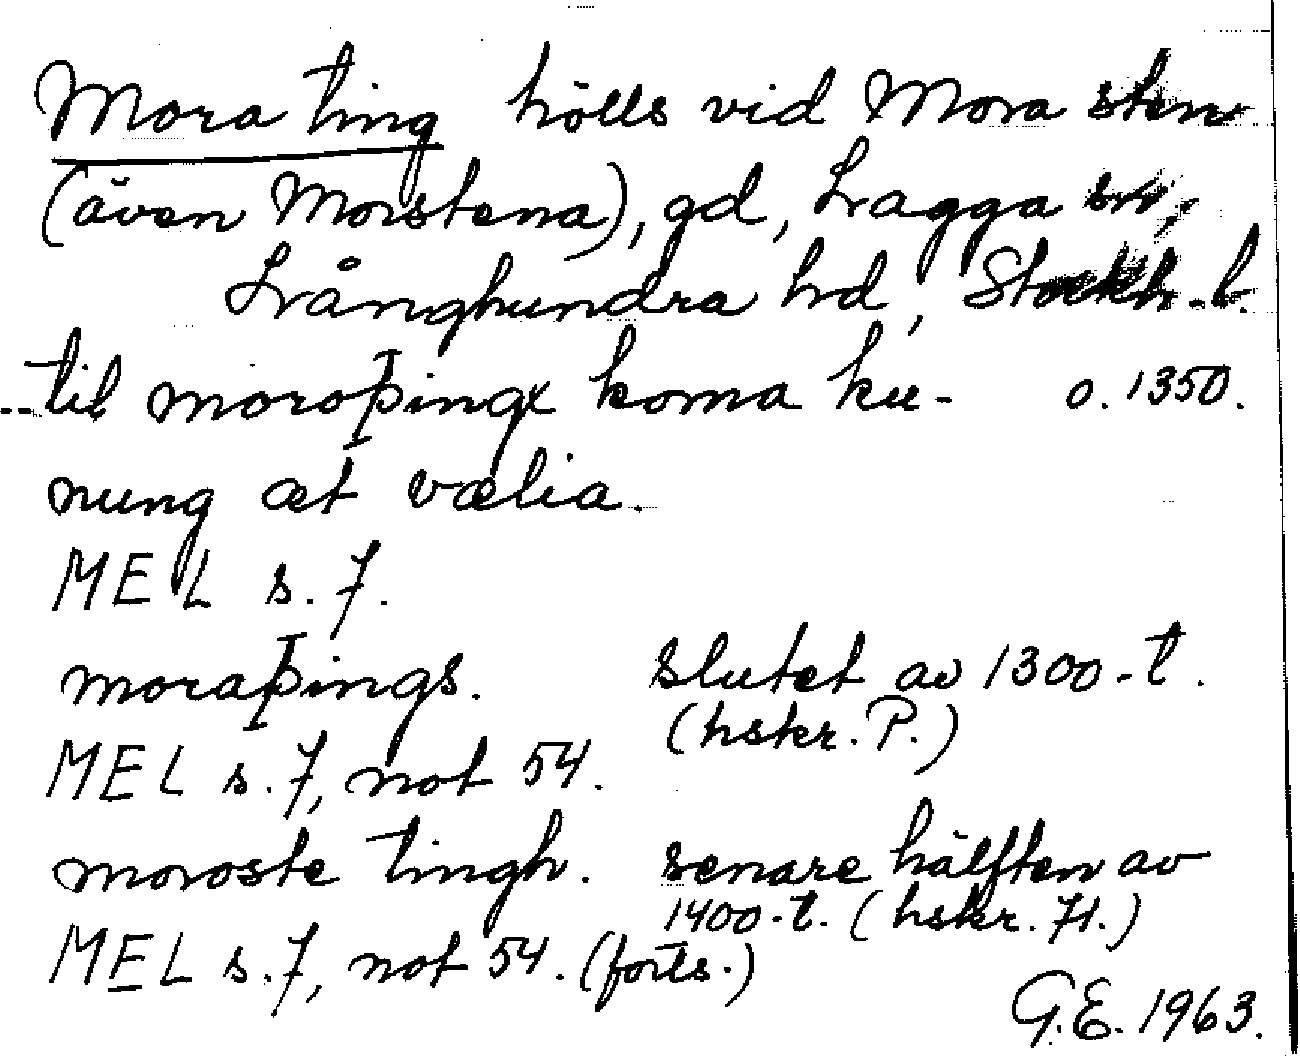 Mora ting hölls vid Mora sten
(även Morstena), gd, Lagga sn,
Långhundra hd, Stockh. l.
--til moroþingx koma ku- o. 1350.
nung æt vælia.
MEL s. 7.
moraþings. slutet av 1300-t.
(hskr. P.)
MEL s. 7, not 54.
moroste tingh. senare hälften av
1400-t. (hskr. 71.)
MEL s. 7, not 54. (forts.)
G.E. 1963.